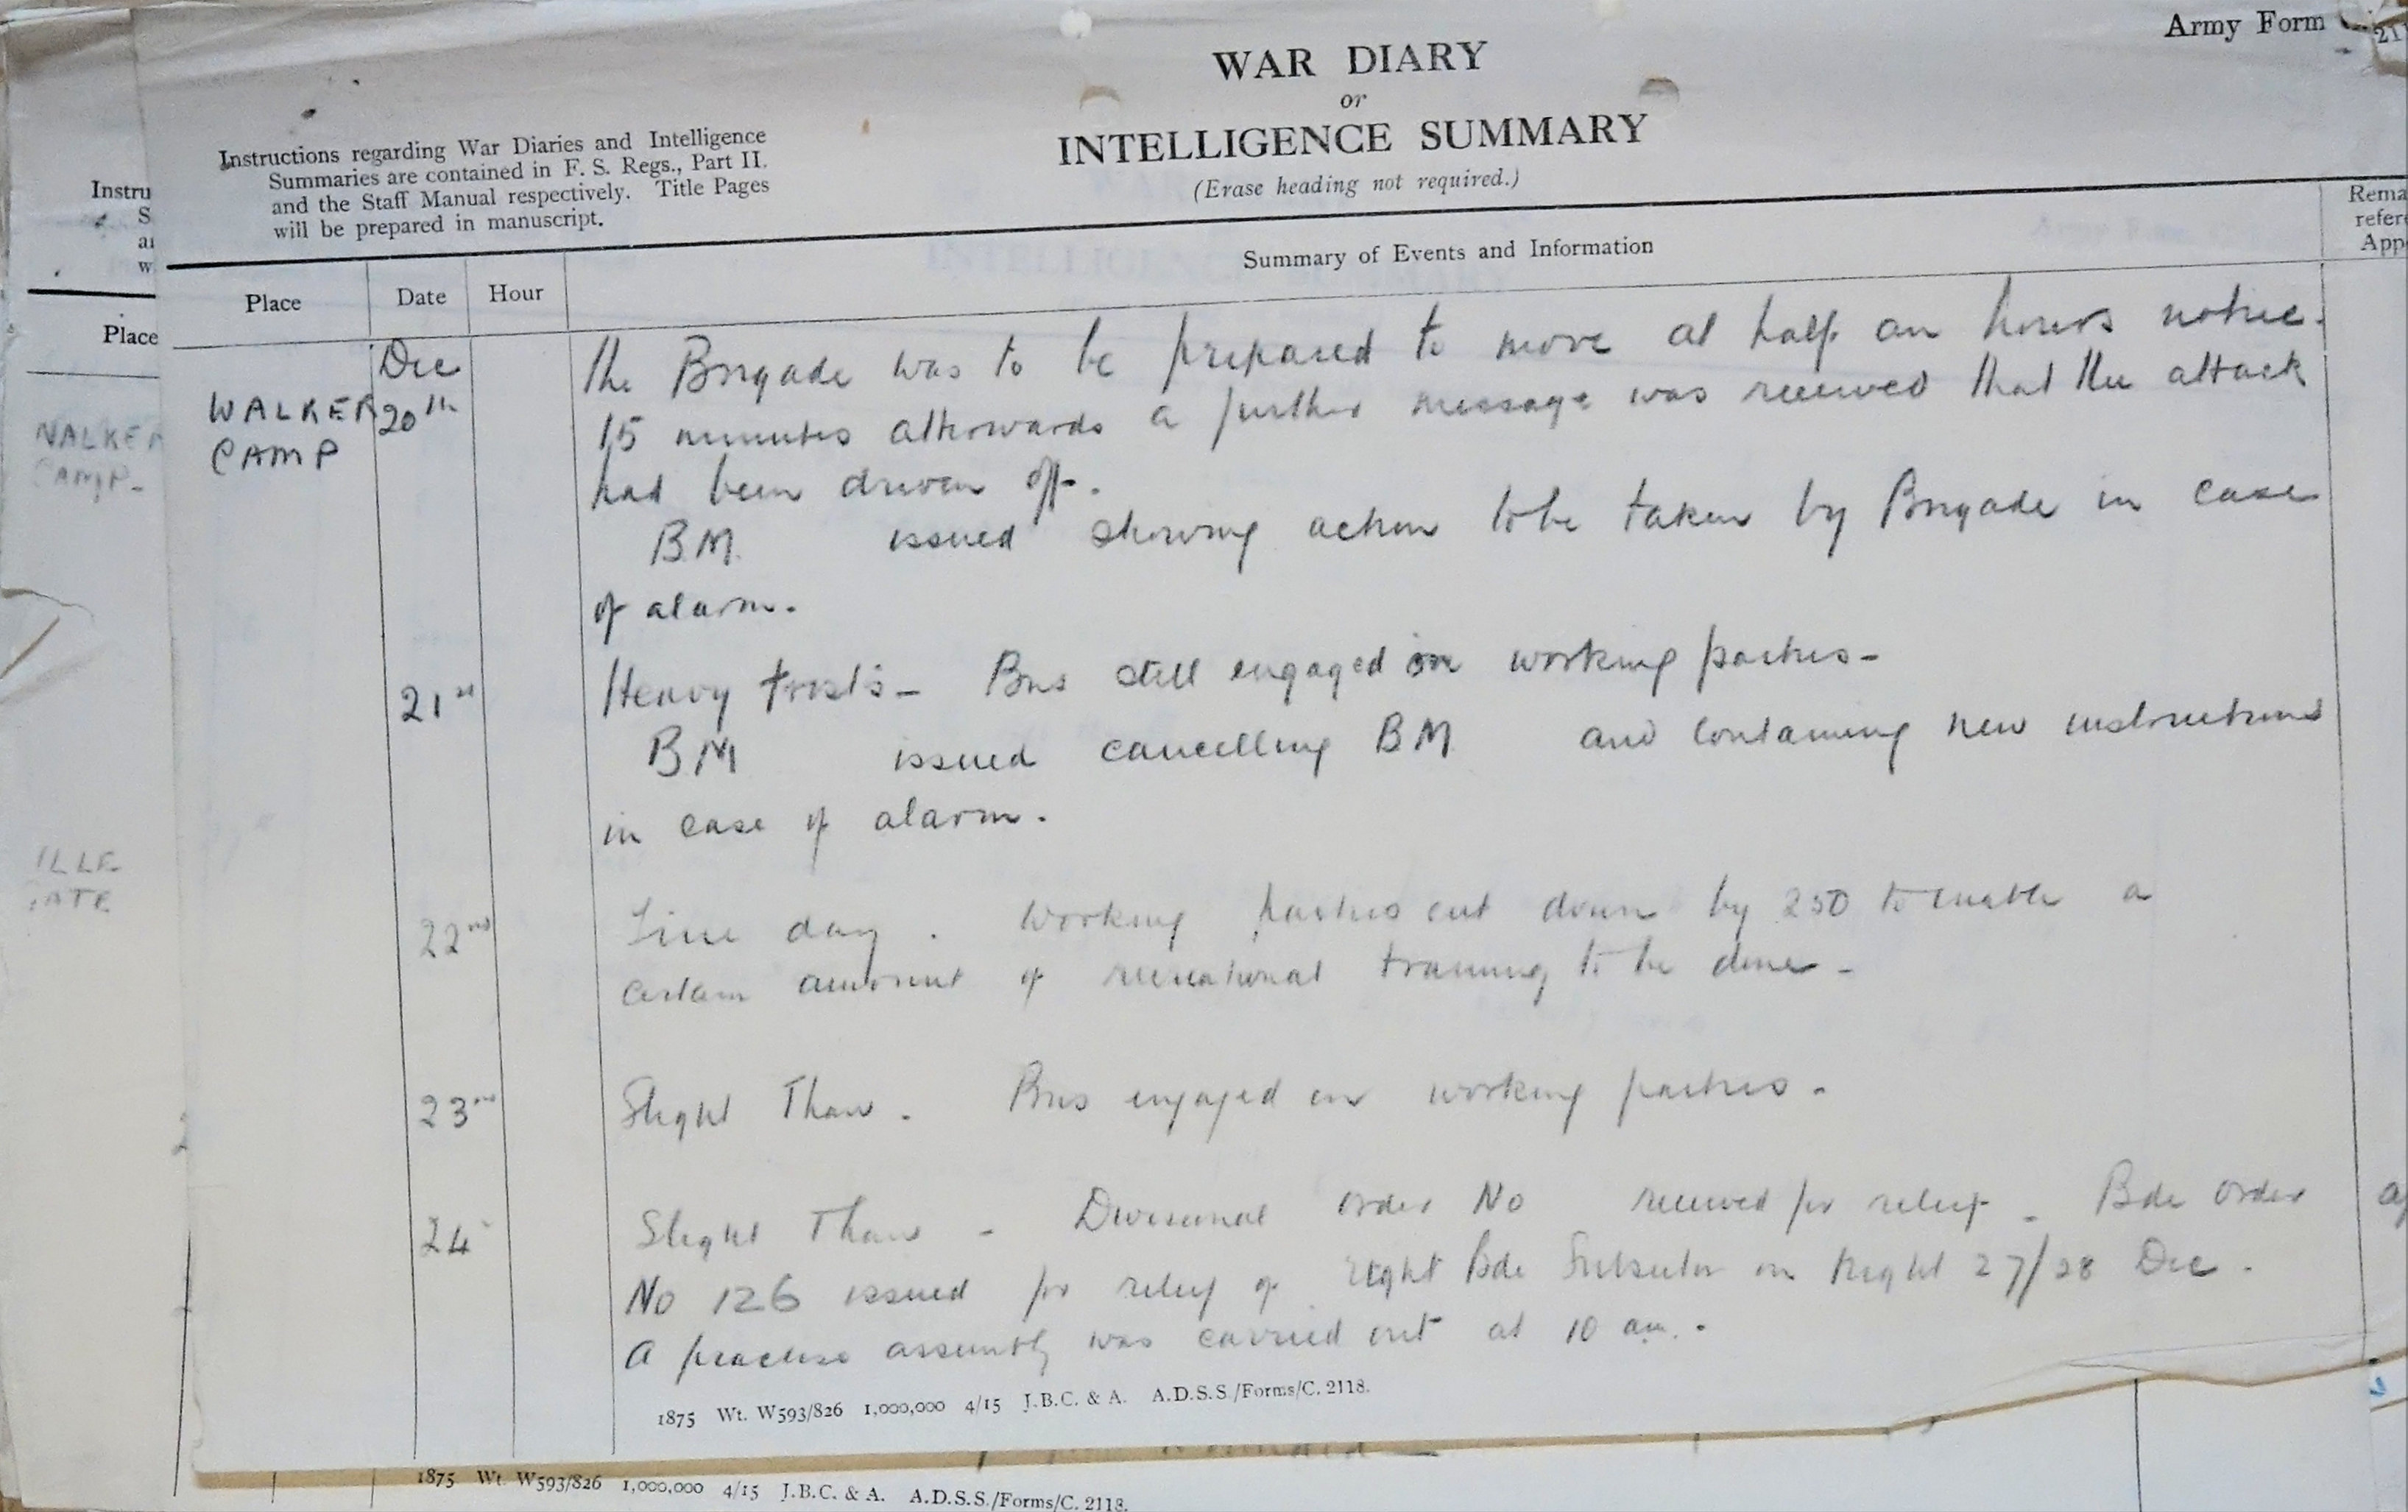 Army Form
21
WAR DIARY
or
INTELLIGENCE SUMMARY
(Erase heading not required.)
Instructions regarding War Diaries and Intelligence
Summaries are contained in F. S. Regs., Part II.
and the Staff Manual respectively. Title Pages
will be prepared in manuscript.
Instru
S
w
Place
WALKER
CAMP-
ILLE
Place Date Hour Summary of Events and Information Rema
refer
App
WALKER CAMP
Dec 20th
the Brigade was to be prepared to move at half an hours notice.
15 minutes afterwards a further message was received that the attack
had been driven off.
BM. issued showing action to be taken by Brigade in case
of alarm.
21st Heavy frosts - Bns still engaged on working parties -
BM issued cancelling BM and containing new instructions
in case of alarm.
22nd Fine day. Working parties cut down by 250 to enable a
certain amount of recreational training to be done -
23rd Slight Thaw. Bns engaged on working parties.
24 Slight Thaw - Divisional order No received for relief - Bde order
No 126 issued for relief of right Bde Subsector on Night 27/28 Dec.
A practise assembly was carried out at 10 am.
1875 Wt. W593/826 1,000,000 4/15 J.B.C. & A. A.D.S.S./Forms/C. 2118.
1875 Wt. W593/826 1,000,000 4/15 J.B.C. & A. A.D.S.S./Forms/C. 2118.